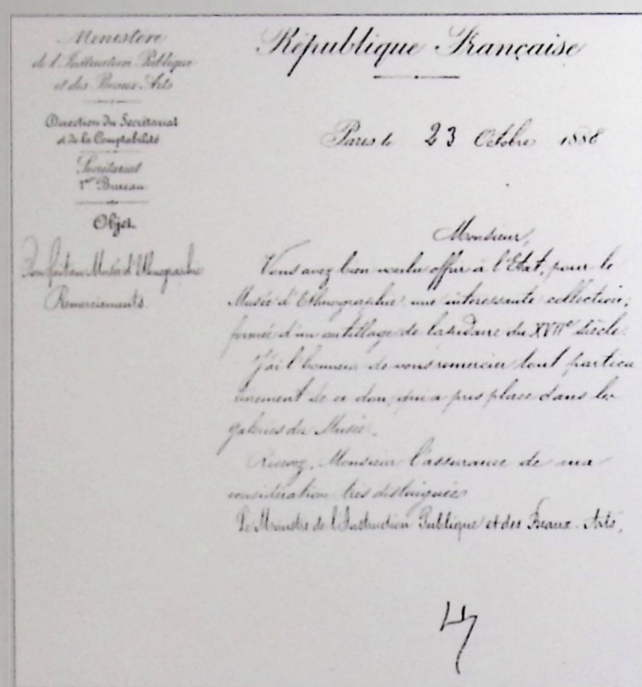 Ministère
de l'Instruction Publique
et des Beaux-Arts
Direction du Secrétariat
et de la Comptabilité
Secrétariat
1er Bureau
Objet
Don fait au Musée d'Ethnographie
Remerciements.
République Française
Paris le 23 Octobre 1888
Monsieur,
Vous avez bien voulu offrir à l'Etat, pour le
Musée d'Ethnographie une intéressante collection,
formée d'un outillage de lapidaire du XVIIe siècle.
J'ai l'honneur de vous remercier tout particu
lièrement de ce don, qui a pris place dans les
galeries du Musée.
Recevez, Monsieur l'assurance de ma
considération très distinguée
Le Ministre de l'Instruction Publique et des Beaux-Arts,